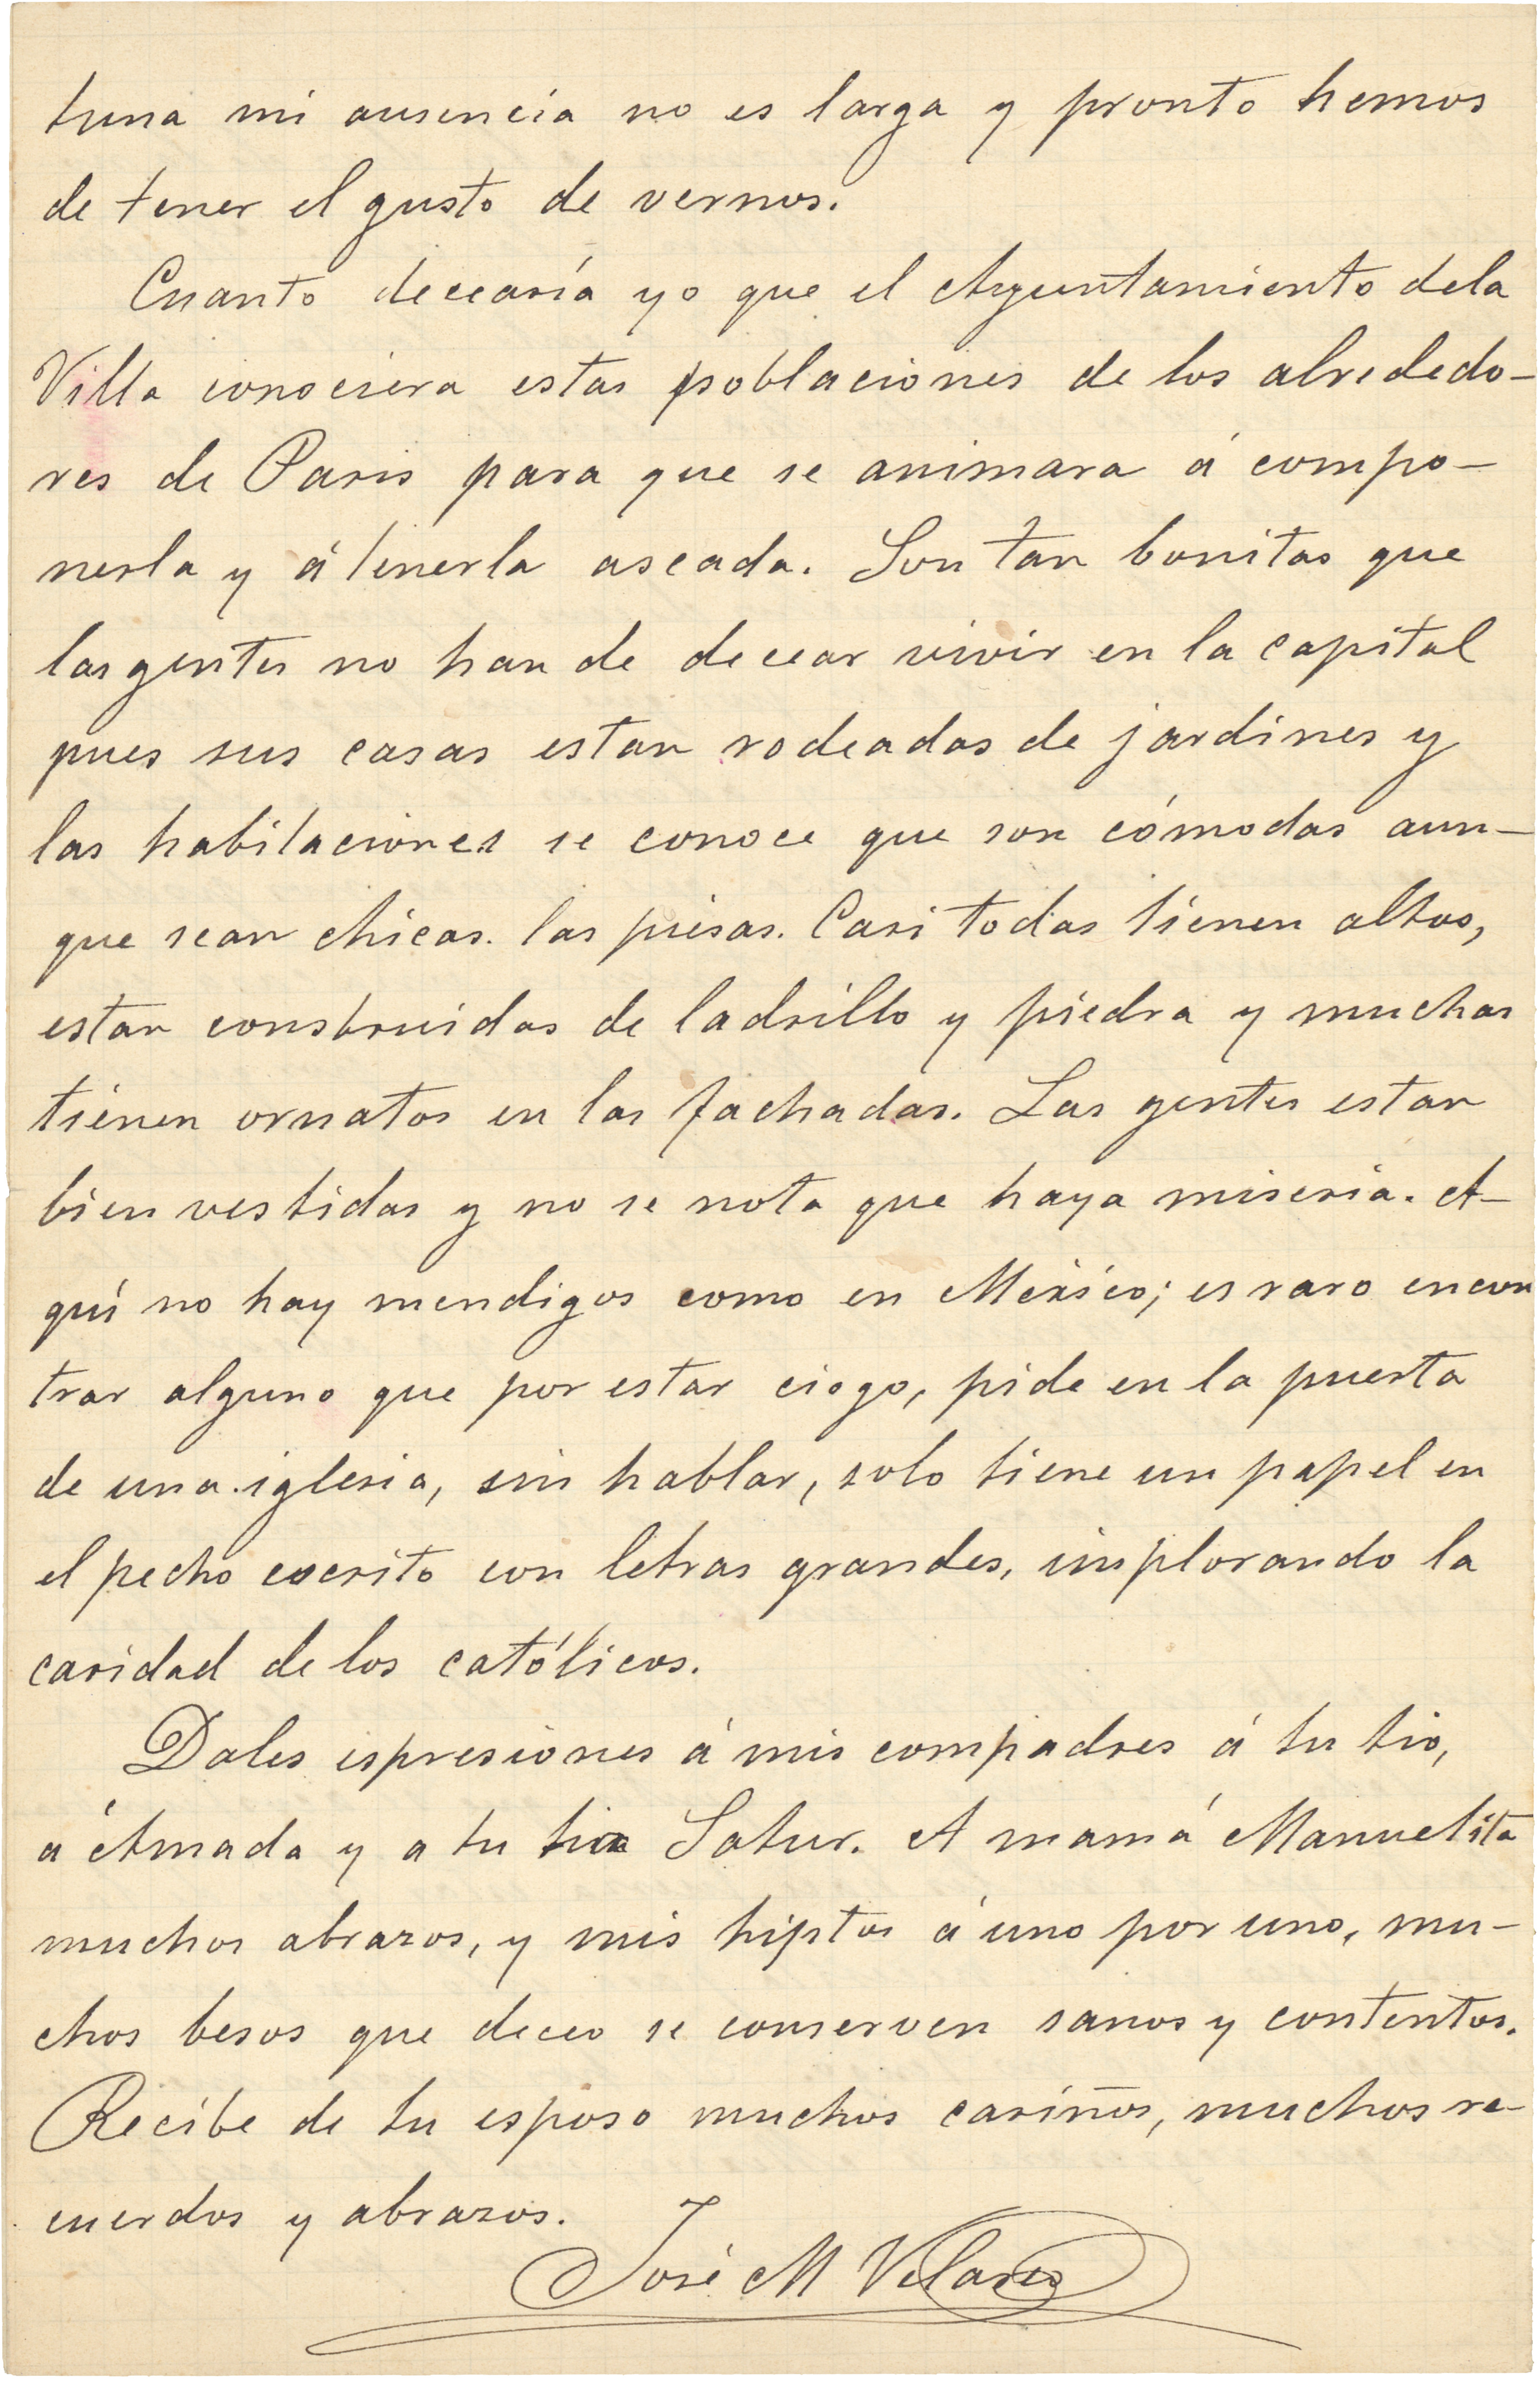 tuna mi ausencia no es larga y pronto hemos
de tener el gusto de vernos.
Cuanto decearía yo que el Ayuntamiento dela
Villa conociera estas poblaciones de los alrededo-
res de Paris para que se animara á compo-
nerla y á tenerla aseada. Son tan bonitas que
las gentes no han de decear vivir en la capital
pues sus casas estan rodeadas de jardines y
las habitaciones se conoce que son cómodas aun-
que sean chicas. las piesas. Casi todas tienen altos,
estan construidas de ladrillo y piedra y muchas
tienen ornatos en las fachadas. Las gentes estan
bien vestidas y no se nota que haya miseria. A-
quí no hay mendigos como en México; es raro encon
trar alguno que por estar ciego, pide en la puerta
de una iglesia, sin hablar, solo tiene un papel en
el pecho escrito con letras grandes, implorando la
caridad de los católicos.
Dales espresiones á mis compadres á tu tio,
á Amada y a tu tia Satur. A mamá Manuelita
muchos abrazos, y mis hijitos á uno por uno, mu-
chos besos que deceo se conserven sanos y contentos.
Recibe de tu esposo muchos cariños, muchos re-
cuerdos y abrazos.
José M Velasco